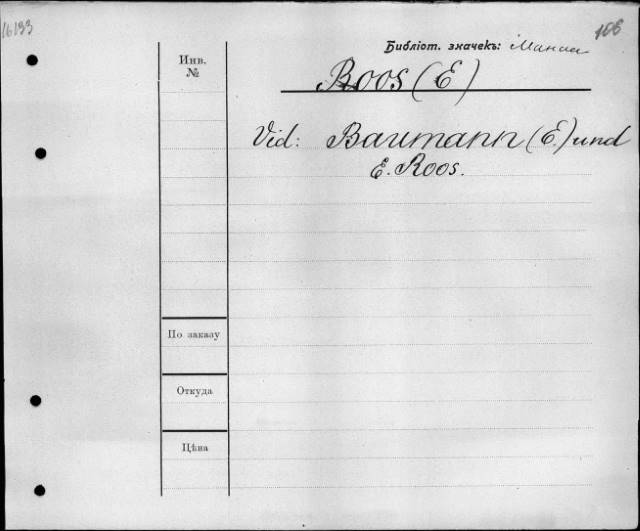 16133
166
Библіот. значекъ:
Инв.
№
Roos (E)
Vid: Baumann (E.) und
E. Roos.
По заказу
Откуда
Цѣна